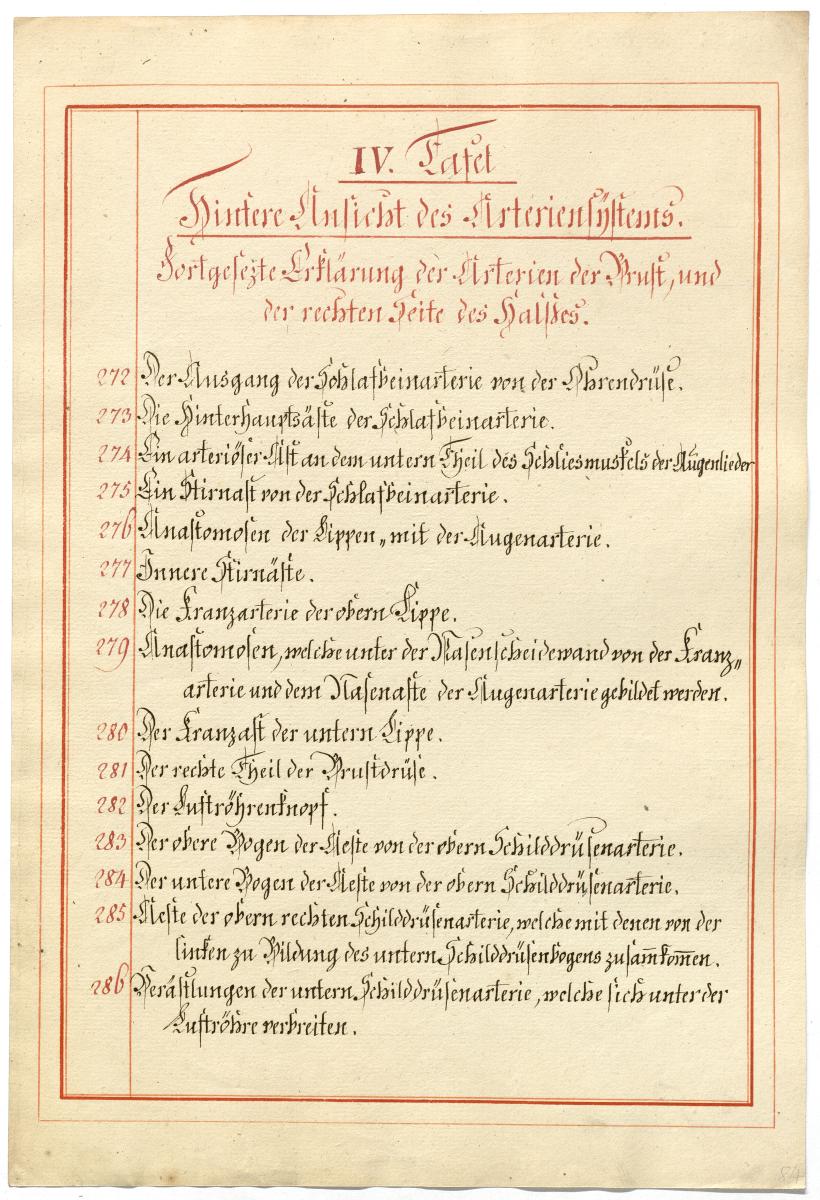 IV. Tafel
Hintere Ansicht des Arteriensÿstems.
Fortgesezte Erklärung der Arterien der Brust, und
der rechten Seite des Halses.
272 Der Ausgang der Schlafbeinarterie von der Ohrendrüse.
273 Die Hinterhauptsäste der Schlafbeinarterie.
274 Ein arteriöser Ast an dem untern Theil des Schliesmuskels der Augenlieder
275 Ein Stirnast von der Schlafbeinarterie.
276 Anastomosen der Lippen„ mit der Augenarterie.
277 Innere Stirnäste.
278 Die Kranzarterie der obern Lippe.
279 Anastomosen, welche unter der Nasenscheidewand von der Kranz„
arterie und dem Nasenaste der Augenarterie gebildet werden.
280 Der Kranzast der untern Lippe.
281 Der rechte Theil der Brustdrüse.
282 Der Luftröhrenknopf.
283 Der obere Bogen der Aeste von der obern Schilddrüsenarterie.
284 Der untere Bogen der Aeste von der obern Schilddrüsenarterie.
285 Aeste der obern rechten Schilddrüsenarterie, welche mit denen von der
linken zu Bildung des untern Schilddrüsenbogens zusam̅kom̅en.
286 Verästlungen der untern Schilddrüsenarterie, welche sich unter der
Luftröhre verbreiten.
84